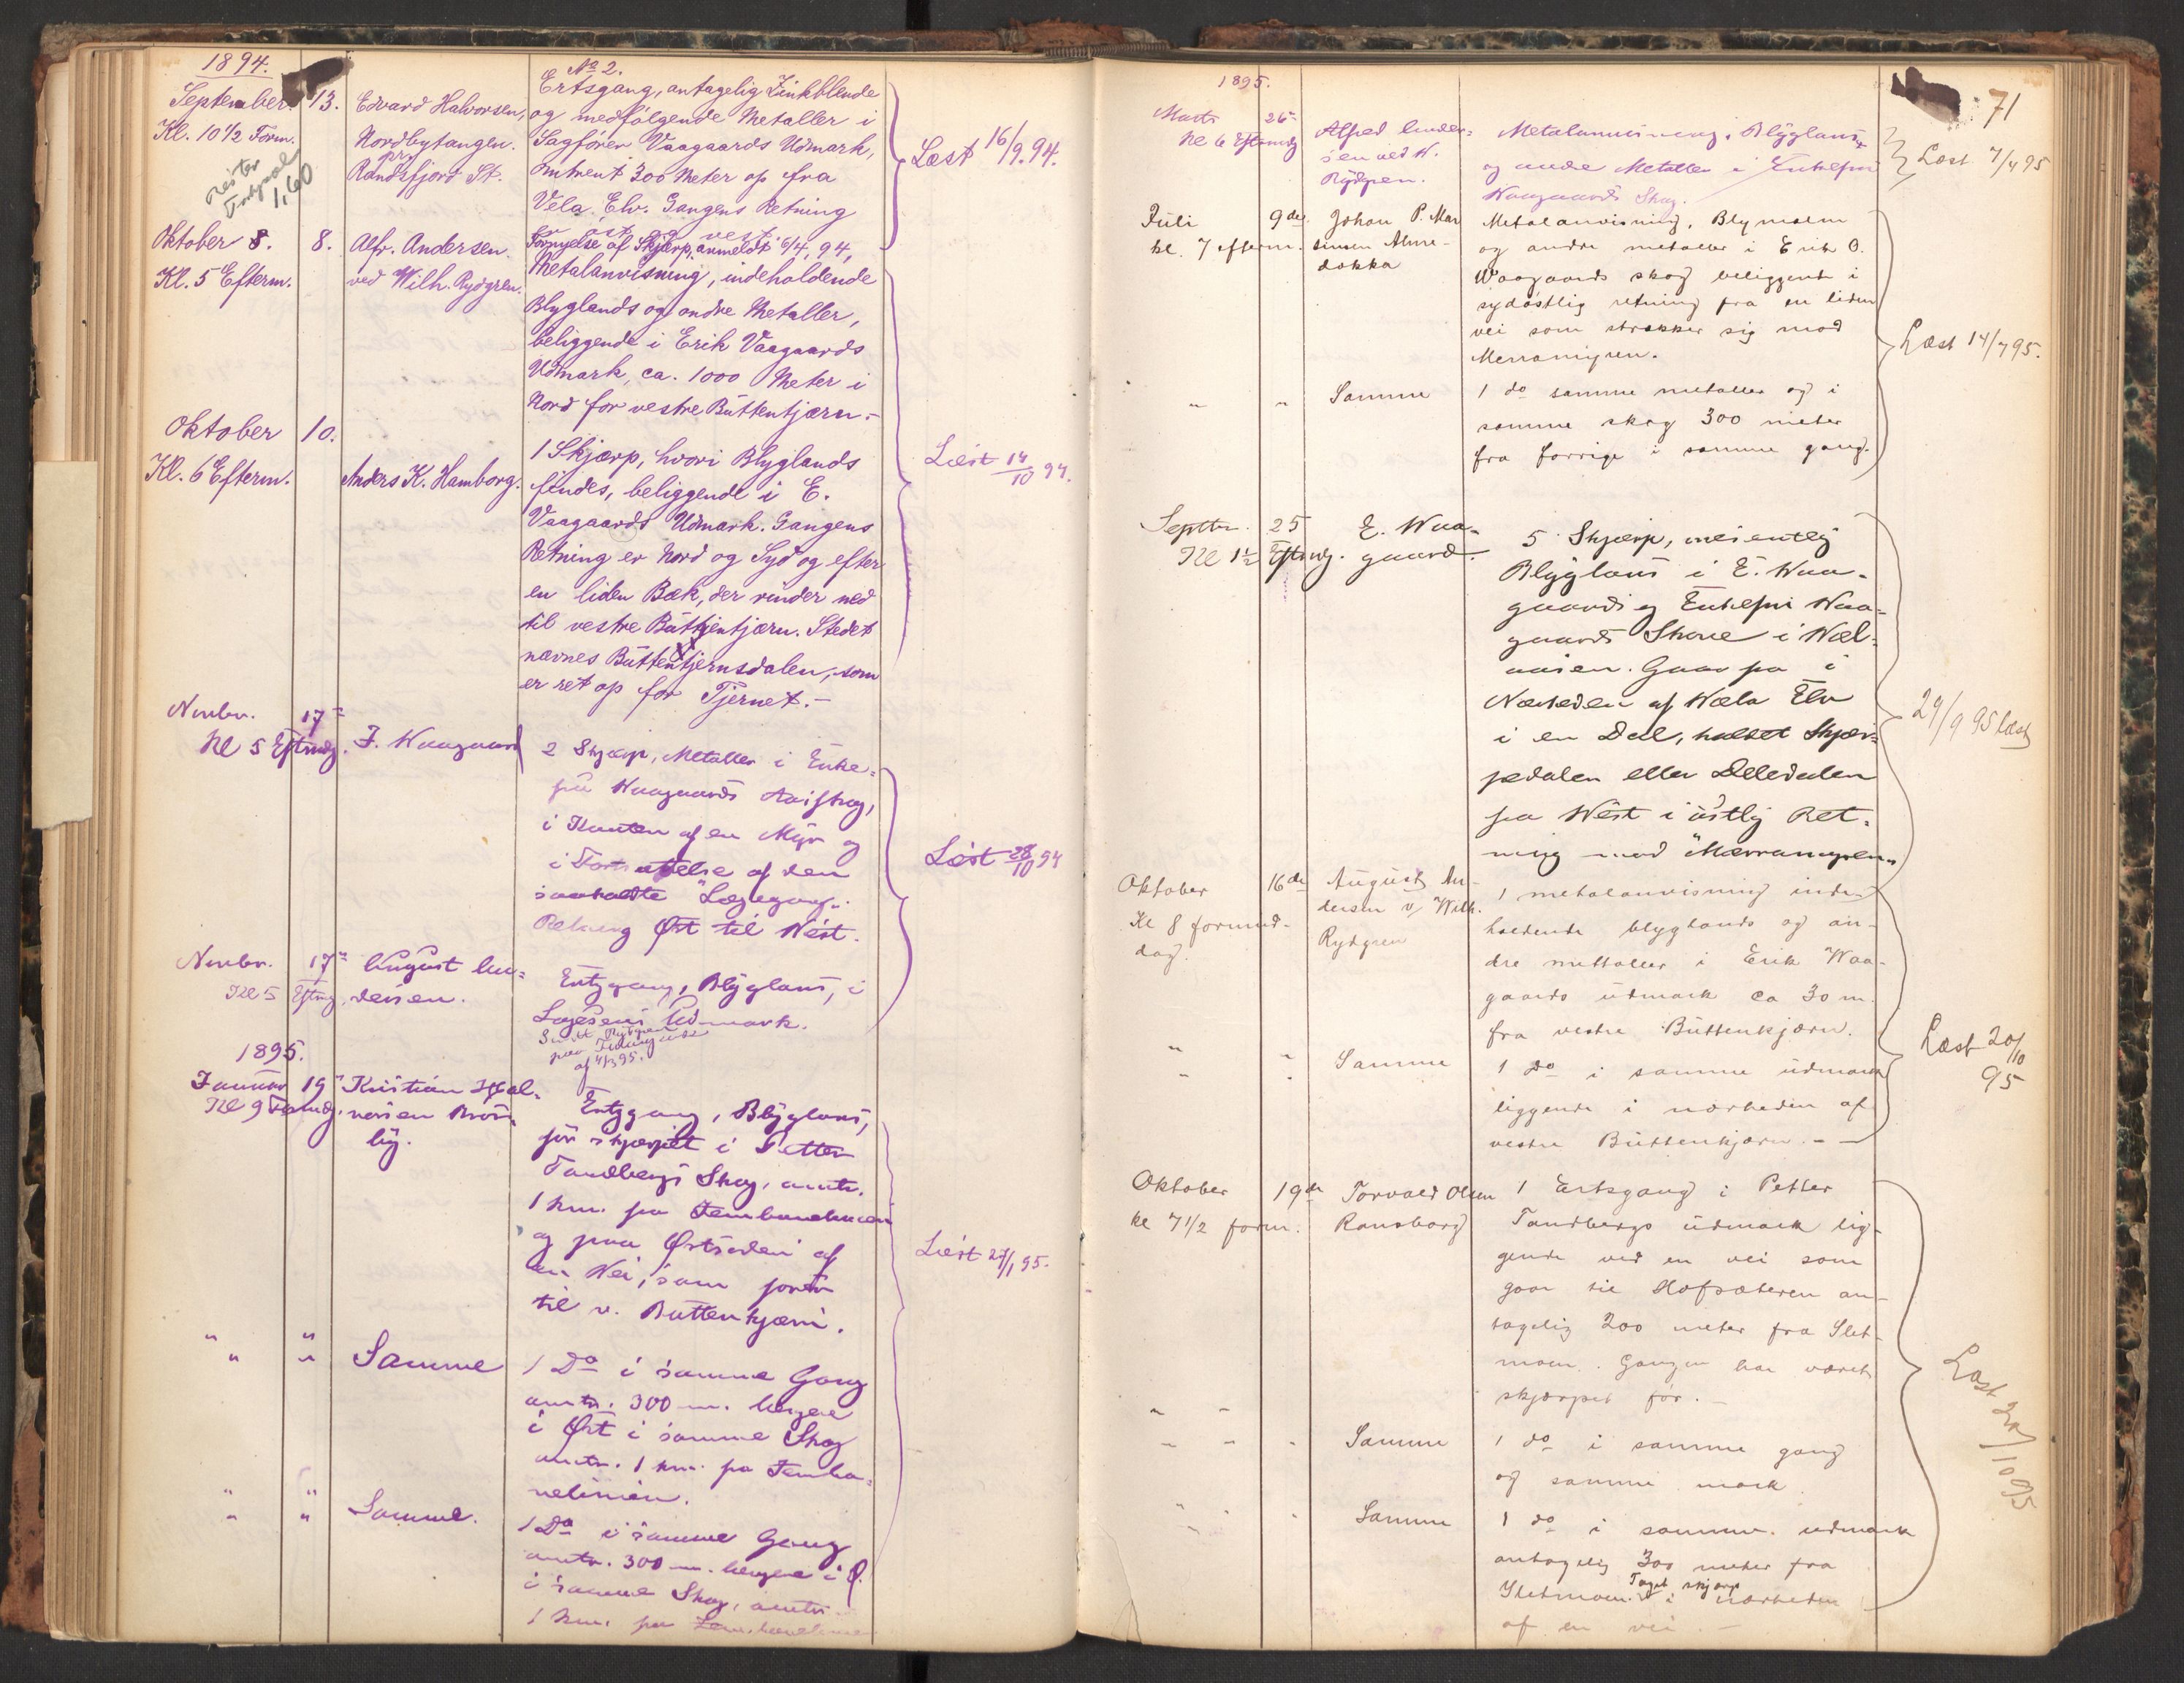 1894.
September 13.
Kl. 10 1/2 Form.
Edvard Halvorsen,
Nordbytangen.
pr
Randsfjord St.
1,60
No 2.
Ertsgang, antagelig Zinkblende
og medfølgende Metaller i
Sagfører Vaagaards Udmark,
omtrent 300 Meter op fra
Vela Elv. Gangens Retning
er øst og vest.
Læst 16/9. 94.
Oktober 8. 8.
Kl. 5 Efterm.
Alfr. Andersen.
ved Wilh. Rydgren.
Fornyelse af Skjærp, anmeldt 6/4, 94,
Metalanvisning, indeholdende
Blyglands og andre Metaller,
beliggende i Erik Vaagaards
Udmark, ca. 1000 Meter i
Nord for vestre Büttentjærn.-
Oktober 10.
Kl. 6 Efterm.
Anders K. Hamborg.
1 Skjærp, hvori Blyglands
findes, beliggende i E.
Vaagaards Udmark. Gangens
Retning er Nord og Syd og efter
en liden Bæk, der rinder ned
til vestre Büttentjærn. Stedet
nævnes Büttentjernsdalen, som
er ret op for Tjernet.-
Læst 14/10 94.
Novbr. 17
Kl 5 Eftmdg.
J. Waagaard
2 Skjærp, Metaller i Enke-
fru Waagaards Skog,
i Kanten af en Myr og
i Fortsættelse af den
saakaldte "Lægegang".
Retning Øst til Wést.
Læst 28/10 94
Novbr. 17
Kl 5 Eftmg.
August An-
dersen.
Ertzgang, Blyglans, i
Udmark.
af 4/3 95.
1895.
Januar 19
Kl 9 Formdg.
Kristian Hal-
vorsen
by.
Ertzgang, Blyglans,
før skjærpet i Petter
Tandbergs Skog, omtr.
1 km. fra Jernbanelinien
og paa Østsiden af
en Vei, som fører
til v. Buttenkjærn.
Læst 27/1 95.
" " Samme
1 Do i samme Gang
omtr. 300 m. længere
i Øst i samme Skog
omtr. 1 km. fra Jernba-
nelinien.
" " Samme.
1 Do i samme Gang
omtr. 300 m. længere i Ø.
i samme Skog, omtr.
1 km. fra Jernbanelinien
71
1895.
Marts 26
Kl 6 Eftmdg
Alfred Ander-
sen ved W.
Rydgren.
Metalanvisning, Blyglans
og andre Metaller i Enkefru
Waagaards Skog.
Læst 7/4 95
Juli 9de
kl. 7 efterm.
Johan P. Mar
tinsen Alme-
dokka
Metalanvisning, Blymalm
og andre metaller i Erik O.
Waagaards skog beliggende i
sydøstlig retning fra en liden
vei som strækker sig mod
Merramyren.
" " Samme
1 do samme metaller og i
samme skog 300 meter
fra forrige i samme gang.
Læst 14/7 95.
Septbr. 25
Kl 1 1/2 Eftmdg.
E. Waa-
gaard
5 Skjærp, væsentlig
Blyglans i E. Waa-
gaards og Enkefru Waa-
gaards Skove i Wæl-
aasen. Gaar fra i
Nærheden af Wæla Elv
i en Dal, kaldet Skjær-
pedalen eller Deledalen
fra Wést i østlig Ret-
ning mod "Mærramyren"
29/9 95 læst
Oktober 16de
Kl 8 formid-
dag
August An-
dersen v/ Wilh.
Rydgren
1 metalanvisning inde-
holdende blyglands og an-
dre mettaller i Erik Waa-
gaards udmark ca 30 m.
fra vestre Büttenkjærn.
" " Samme
1 Do i samme udmark
liggende i nærheden af
vestre Büttenkjærn. -
Læst 20/10
95
Oktober 19de
kl 7 1/2 form.
Torvald Olsen
Ransborg
1 Ertsgang i Petter
Tandbergs udmark lig-
gende ved en vei som
gaar til Hofsæteren an-
tagelig 200 meter fra Slet-
moen. Gangen har været
skjærpet før. -
" " Samme
1 do i samme gang
og samme mark.
" " Samme
1 do i samme udmark
antagelig 300 meter fra
Sletmoen. Taget skjærp i nærheden
af en vei. -
Læst 20/10 95